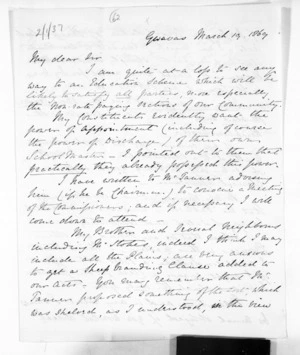 2/1/37
Gwavas March 19. 1869
My dear Sir
I am quite at a loss to see any
way to an Education Scheme which will be
likely to satisfy all parties, more especially
the non-rate paying sections of our Community.
My Constituents evidently want the
power of appointment (including of course
the power of discharge) of their own
School Master — I pointed out to them that
practically they already possessed this power.
I have written to Mr Tanner advising
him (if he be Chairman) to convene a Meeting
of the Commissioners, and if necessary I will
come down to attend —
My Brother and several Neighbours
including Mr Stokes, indeed I think I may
include all the Plains, are very anxious
to get a Sheep branding Clause added to
our act. You may remember that Mr
Tanner proposed something of the sort which
was shelved, as I understood, in the view